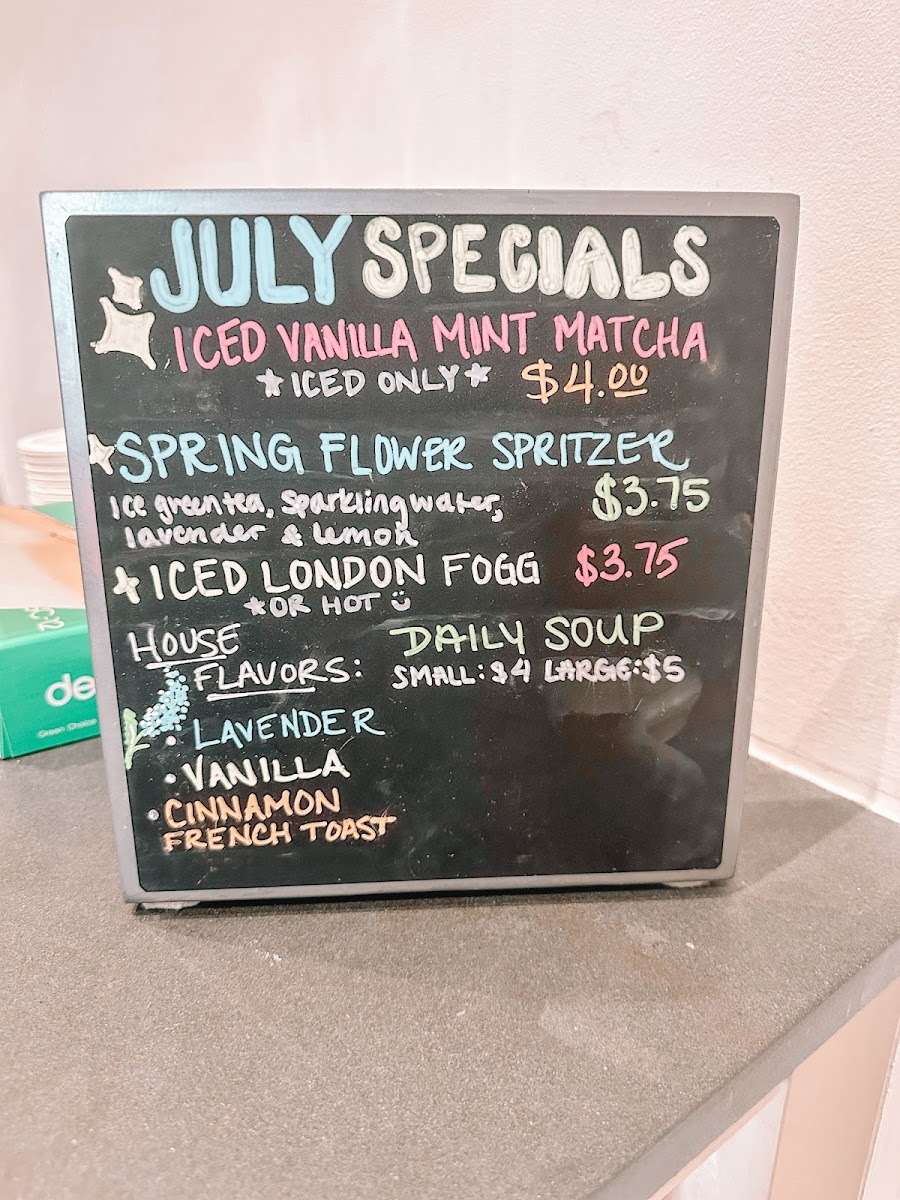 JULY SPECIALS
ICED VANILLA MINT MATCHA
*ICED ONLY* $4.00
SPRING FLOWER SPRITZER
Ice green tea, sparkling water, $3.75
lavender & lemon
ICED LONDON FOGG $3.75
*OR HOT
HOUSE DAILY SOUP
FLAVORS: SMALL: $4 LARGE: $5
• LAVENDER
• VANILLA
• CINNAMON
FRENCH TOAST
de
Green Choice